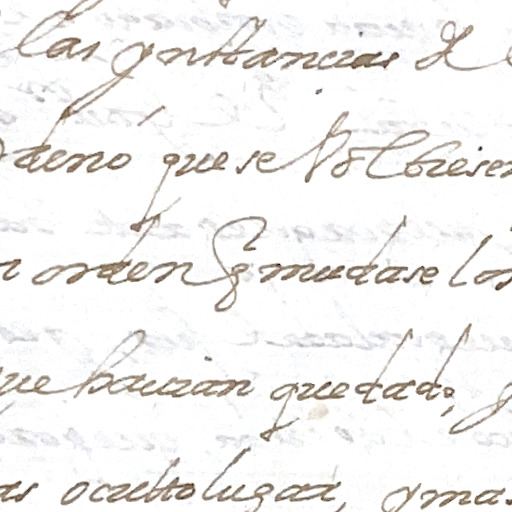 las ynstancias de
denó que se Volbiesen
n orden q mudase los
que hauian quedado, y
as ocultto lugar, y mas